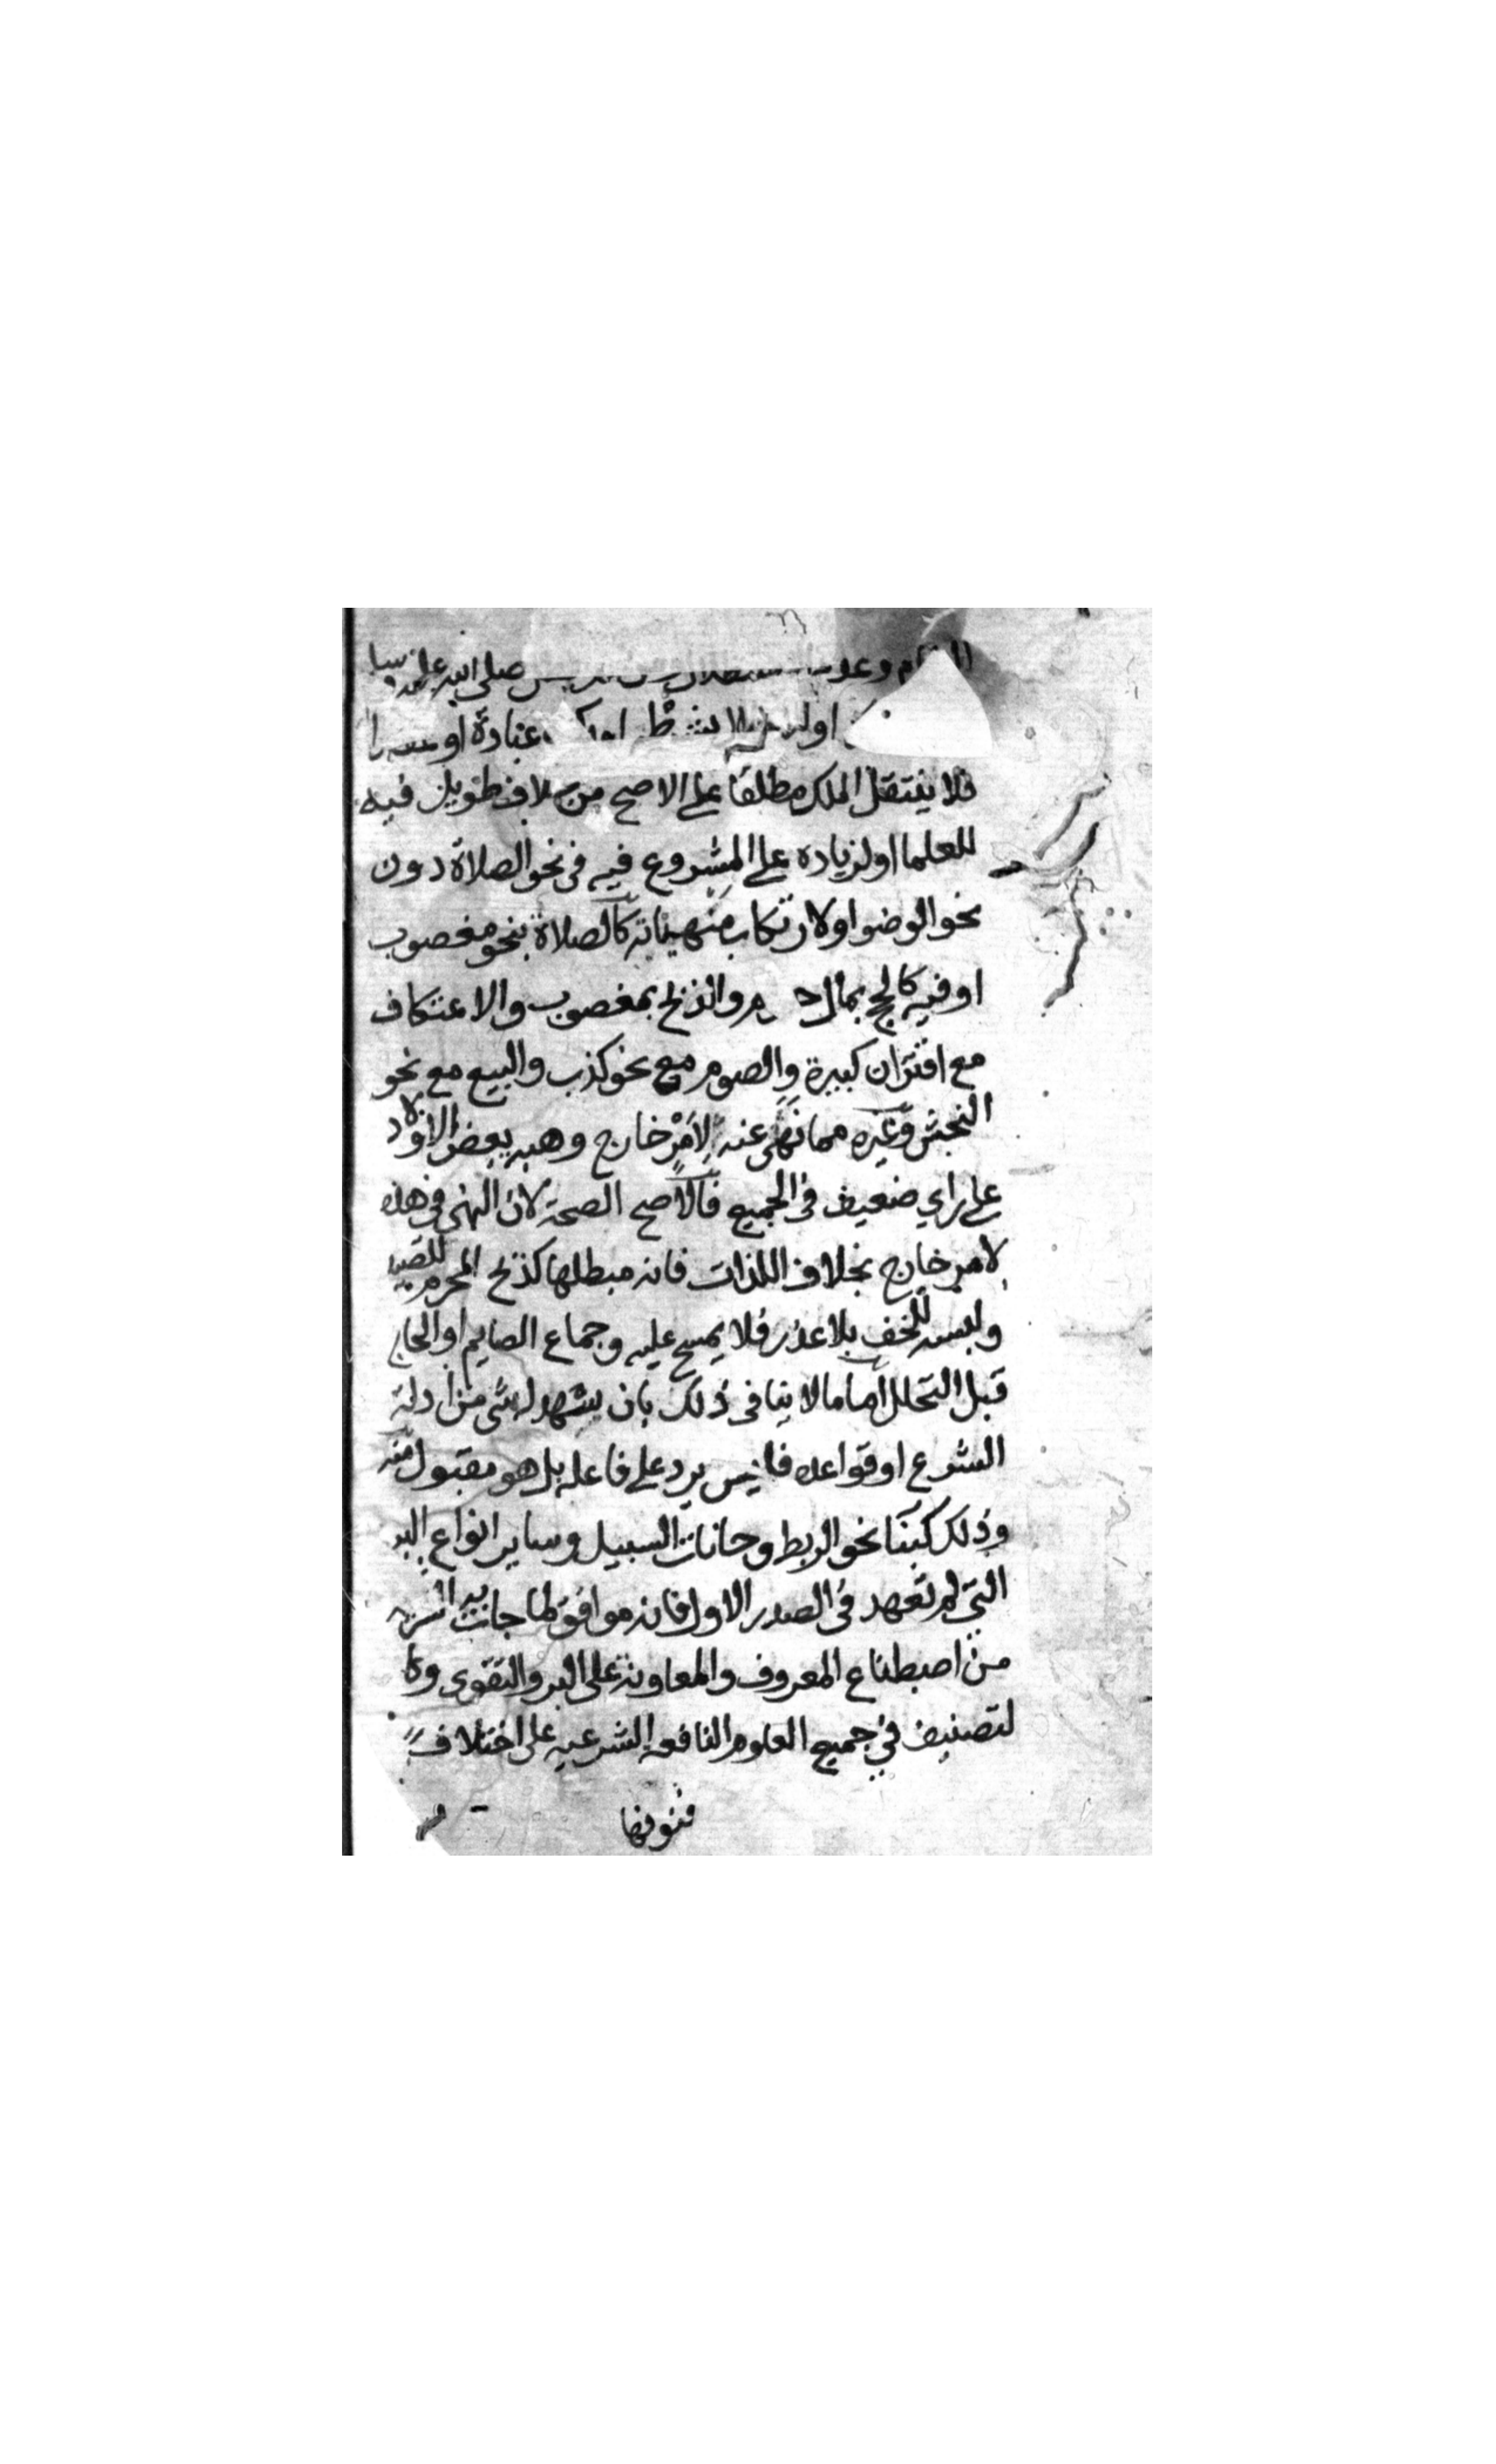 صلى الله عليه وسلم
او عبادة او
فلا ينتقل الملك مطلقا على الاصح من خلاف طويل فيه
للعلما او لزياده على المشروع فيه في نحو الصلاة دون
نحو الوضو او لارتكاب منهياته كالصلاة بنحو مغصوب
او فيه كالحج بمال والذبح بمغصوب والاعتكاف
مع اقتران كبيرة والصوم مع نحو كذب والبيع مع نحو
النجش وغيره مما نهى عنه لامر خارج وهبه بعض الاولاد
على راي ضعيف في الجميع فالاصح الصحة لان النهي في هذه
لامر خارج بخلاف اللذات فانه مبطلها كذبح المحرم للصيد
ولبسه للخف بلا عذر فلا يمسح عليه وجماع الصايم او الحاج
قبل التحلل اما ما لا ينافى ذلك بان يشهد له شى من ادلة
الشرع او قواعده فليس يرد على فاعله بل هو مقبول منه
وذلك كبنا نحو الربط وخانات السبيل وساير انواع البر
التي لم تعهد في الصدر الاول فانه موافق لما جات به
من اصطناع المعروف والمعاونة على البر والتقوى وكا
لتصنيف في جميع العلوم النافعه الشرعيه على اختلاف
فنونها